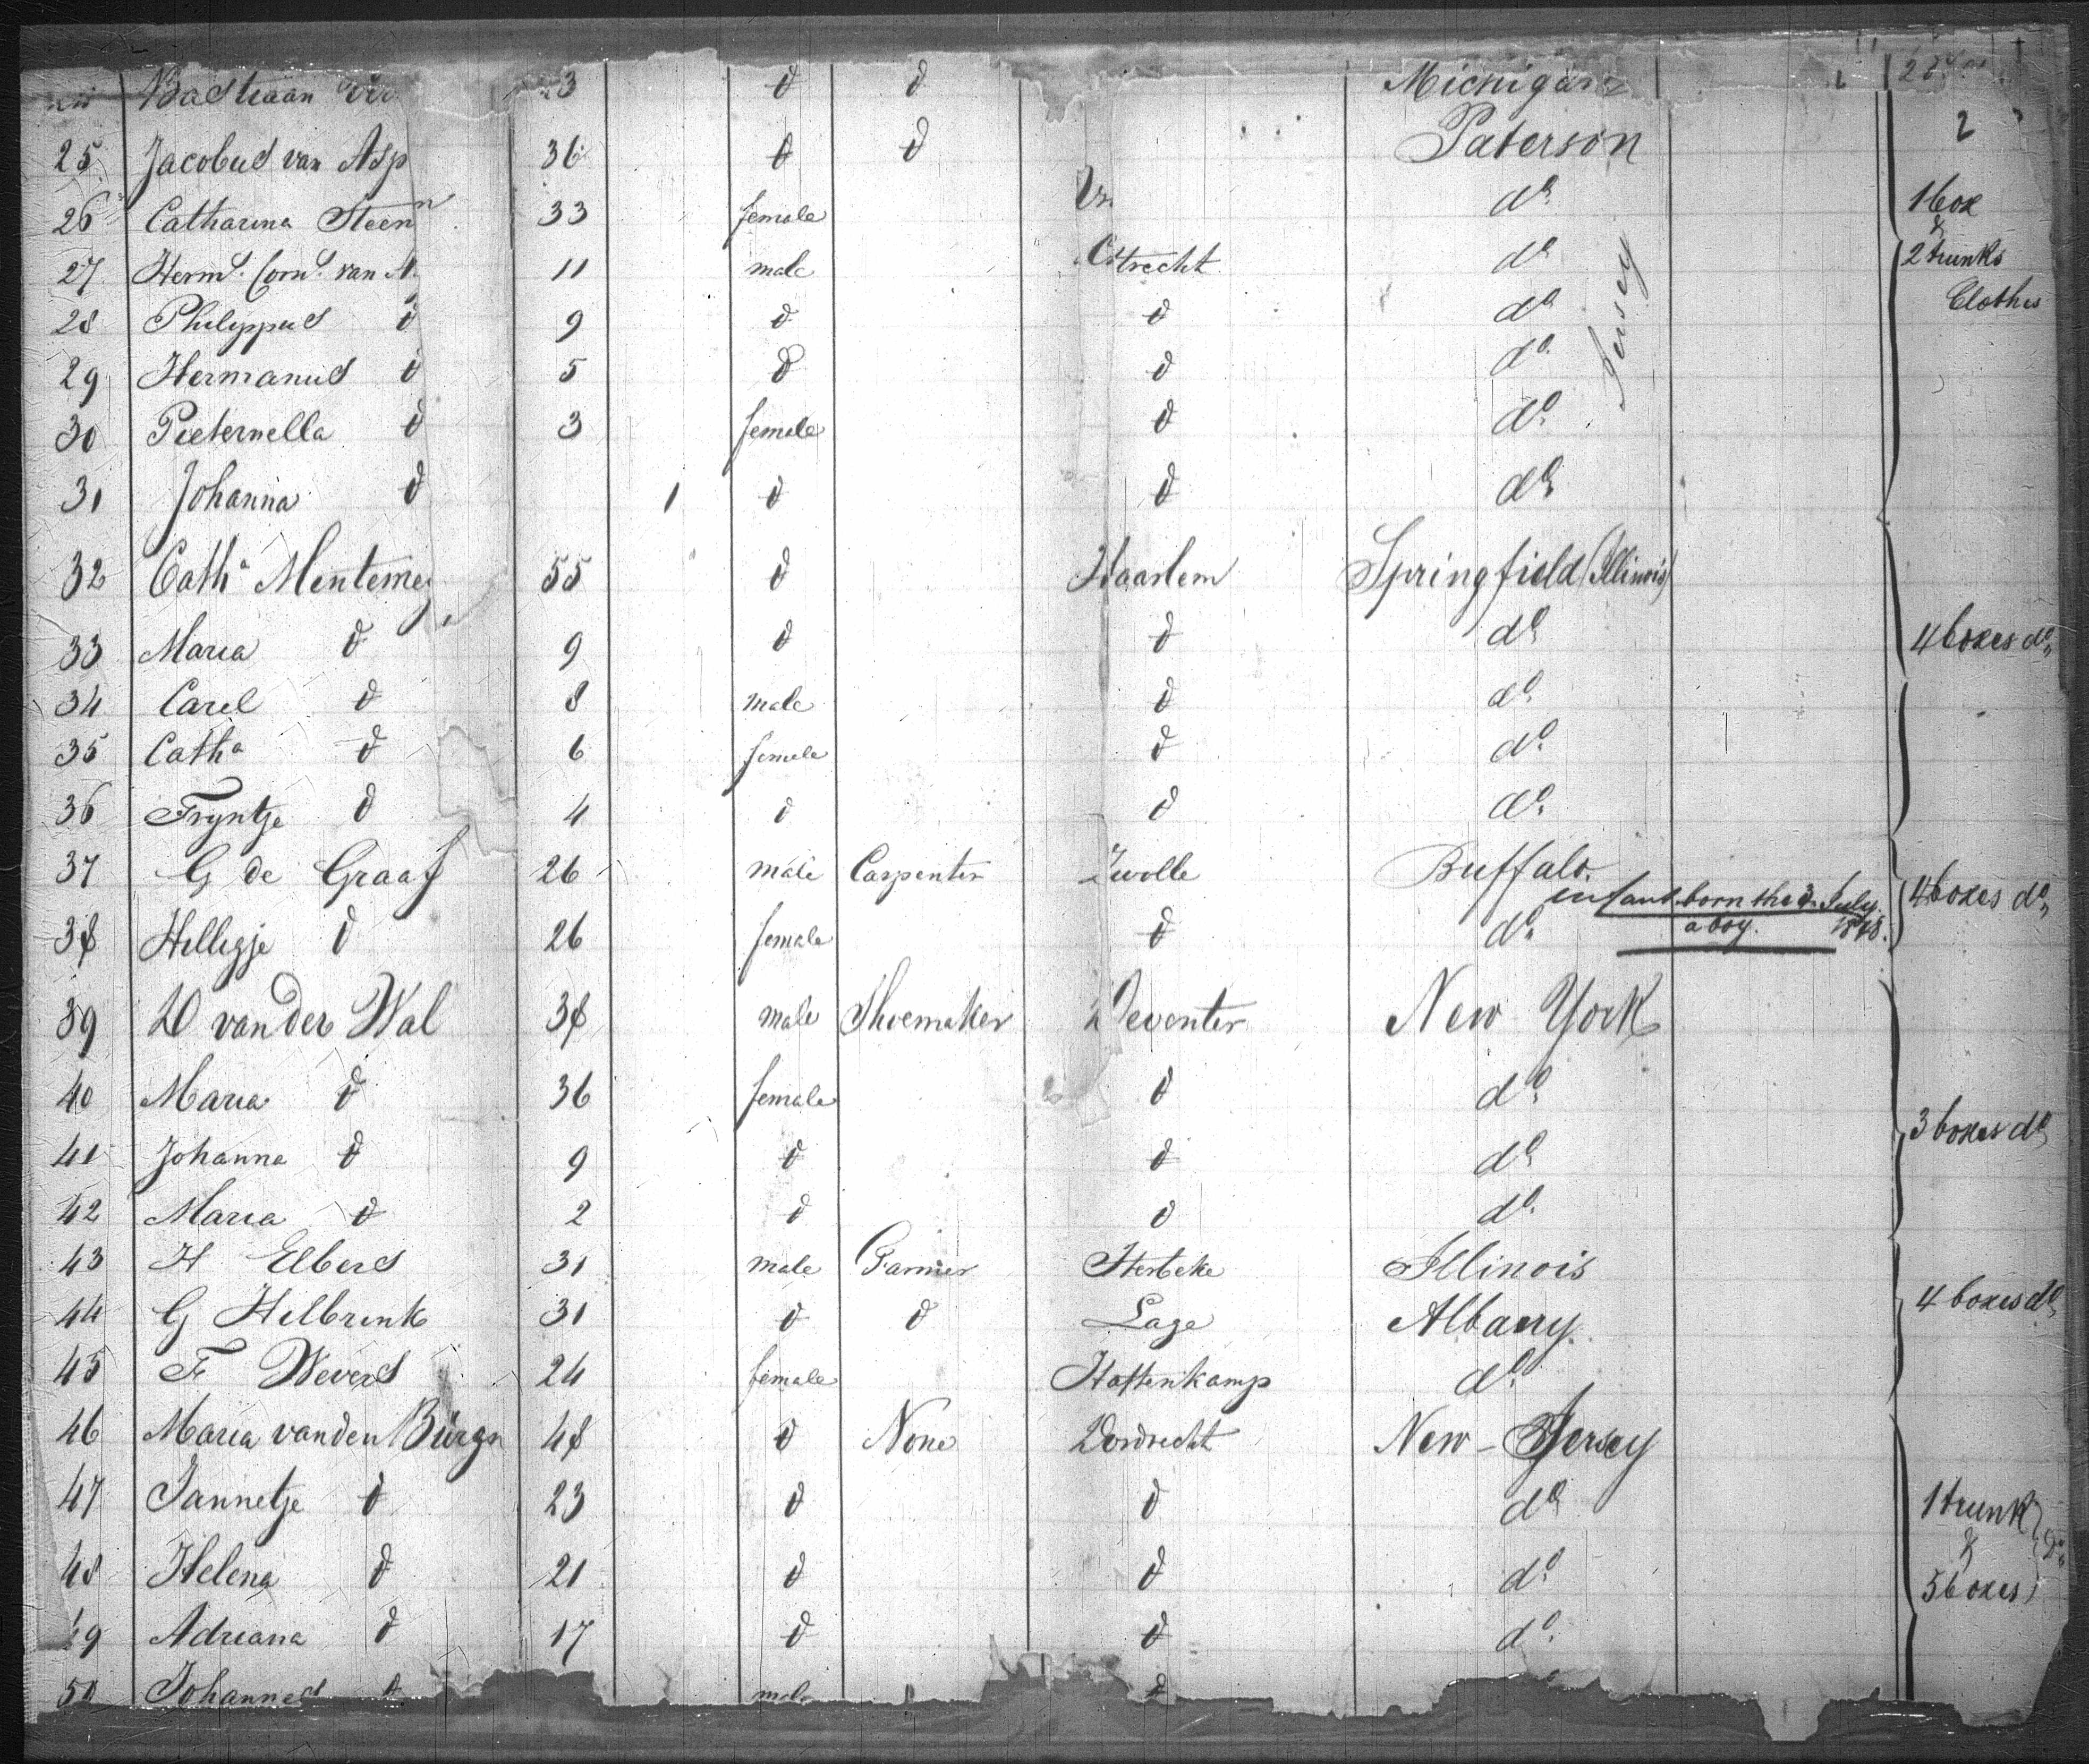 Bastiaan 3 d d Michigan
25 Jacobus van Asp 36 d d Paterson 2
26 Catharina Steen 33 female do 1 box
27 Herms. Corns. van A 11 male Utrecht do Jersey & 2 trunks
28 Philippus d 9 d d do Clothes
29 Hermanus d 5 d d do
30 Pieternella d 3 female d do
31 Johanna d 1 d d do
32 Catha Mentemey 55 d Haarlem Springfield (Illinois)
33 Maria d 9 d d do 4 boxes do
34 Carel d 8 male d do
35 Catha d 6 female d do
36 Tryntje d 4 d d do
37 G de Graaf 26 male Carpenter Zwolle Buffalo 4 boxes do
infant born the 3 July
38 Hilligje d 26 female d do a boy. 1848.
39 D van der Wal 38 male Shoemaker Deventer New York
40 Maria d 36 female d do
41 Johanna d 9 d d do 3 boxes do
42 Maria d 2 d d do
43 H Elbers 31 male Farmer Herbeke Illinois
44 G Hilbrink 31 d d Lage Albany 4 boxes do
45 F Wevers 24 female Haftenkamp do
46 Maria van den Bürgn 48 d None Dordrecht New-Jersey
47 Jannetje d 23 d d do 1 trunk
48 Helena d 21 d d do & 5 boxes do
49 Adriana d 17 d d do
50 Johannes d male d